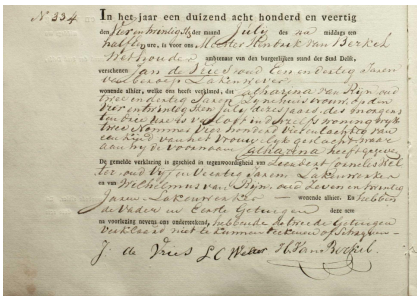 N° 334.
In het jaar een duizend acht honderd en veertig
den Vier en twintigsten der maand July des na middags ten
half ure, is voor ons Meester Hendrik van Berckel
Wethouder ambtenaar van den burgerlijken stand der Stad Delft,
verschenen Jan de Vries oud Een en dertig Jaren
van beroep Lakenwerker
wonende alhier, welke ons heeft verklaard, dat Catharina van Rijn, oud
twee en dertig Jaren Zijne huisvrouw, op den
vier en twintigsten July dezes jaars, des morgens
ten drie ure is verlost in dezelfs woning wijk
twee Nommer honderd vier en tachtig van
een kind van het vrouwelijk geslacht waar
aan hij de voornaam Catharina heeft gegeven
De gemelde verklaring is geschied in tegenwoordigheid van Leendert Cornelis Wel
ter, oud Vijf en Veertig Jaren, Lakenwerker
en van Wilhelmus van Rijn, oud Zeven en twintig
Jaren Lakenwerker wonende alhier. En hebben
de Vader en Eerste Getuigen deze acte
na voorlezing nevens ons onderteekend, hebbende de tweede Getuigen
verklaard niet te kunnen teekenen of Schrijven
J. de Vries L C Welter H. van Berckel